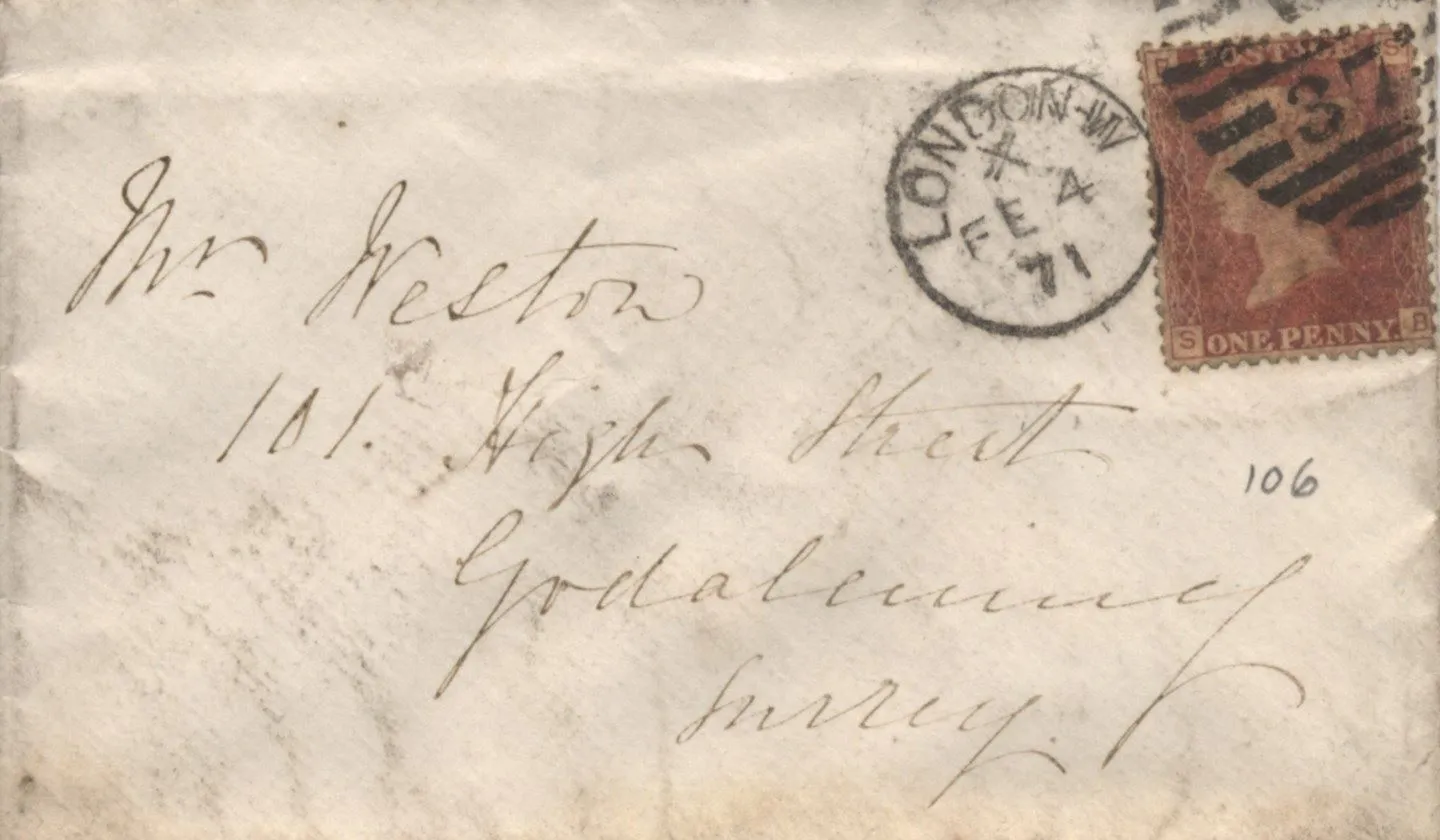 LONDON-W
X
FE 4
71
37
POSTAGE
S
S ONE PENNY. B
Mr Weston
101. High Street
106
Godalming
Surrey.